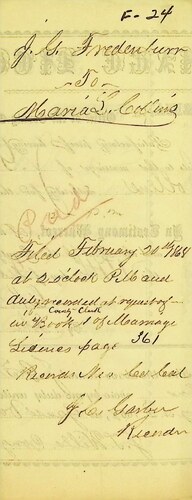 F-24
J. G. Fredenburr
To
Maria L. Collins
Paid
Filed February 20th 1868
at 2 o'clock P.M. and
duly recorded at request of
County Clerk
in Book 1 of Marriage
Licences page 361
Records Co. Cal
Recorder